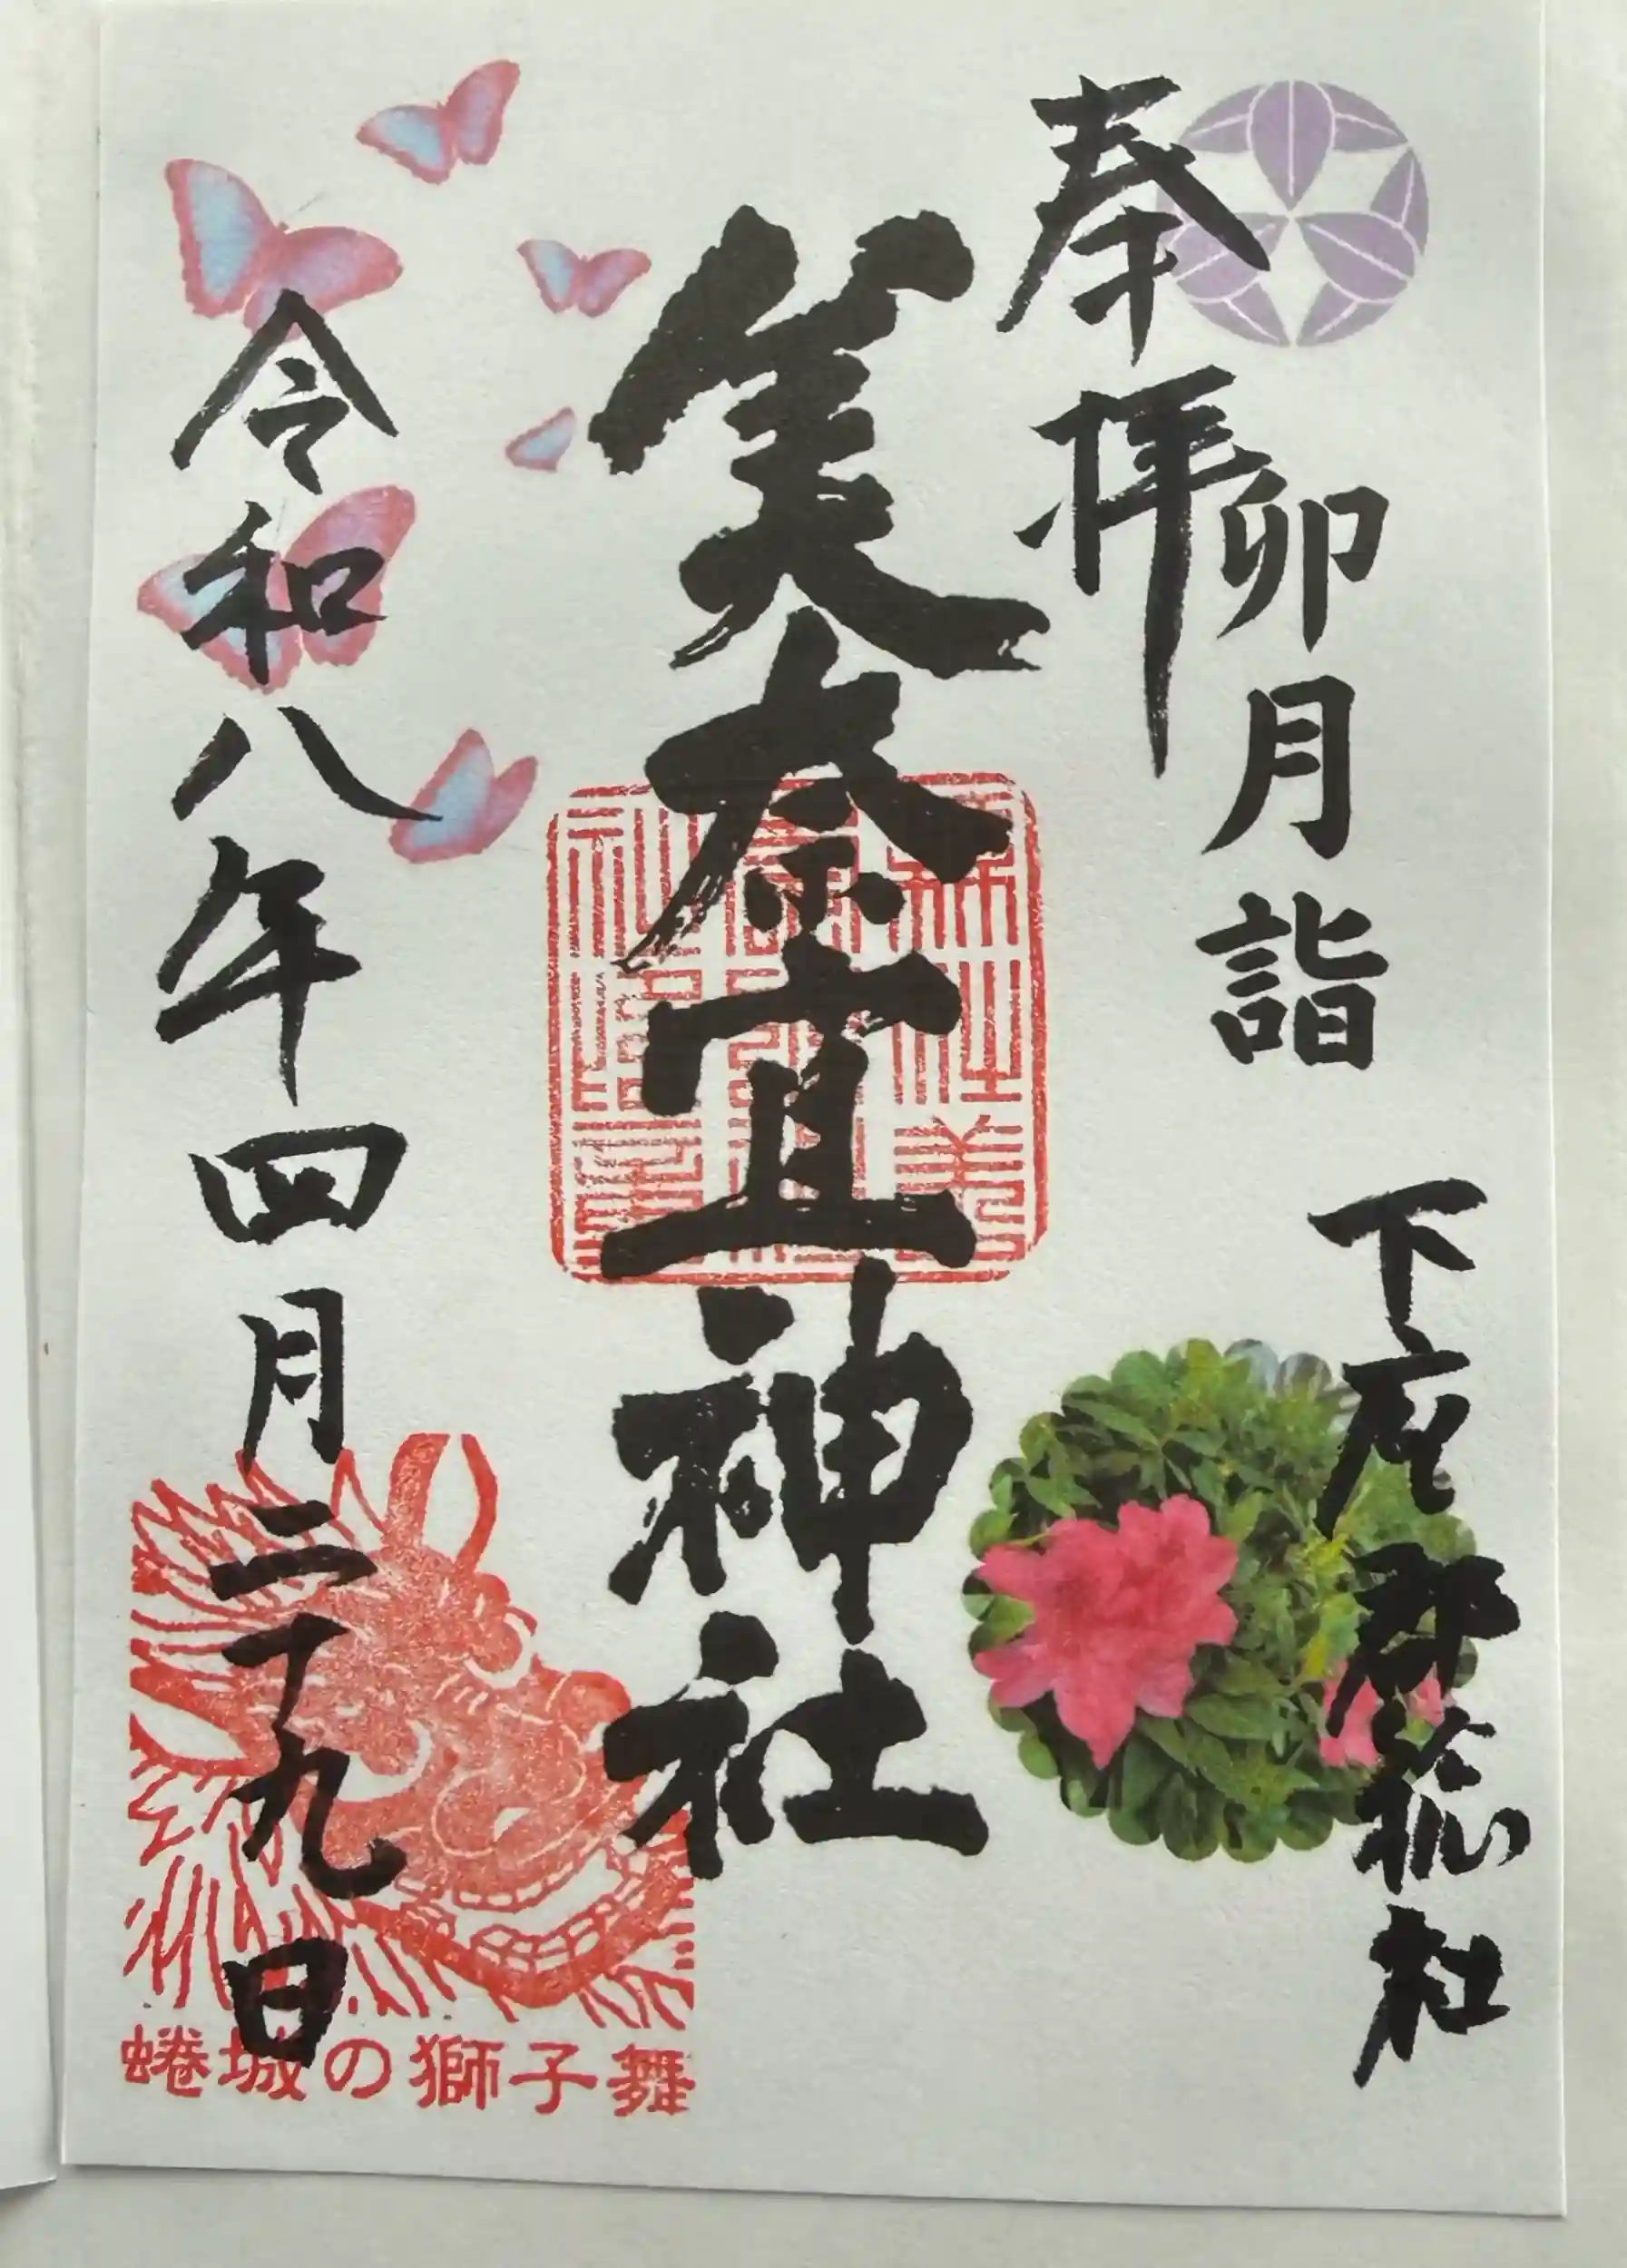 奉拝
卯月詣
下座郡総社
美奈宜神社
令和八年四月二十九日
蜷城の獅子舞